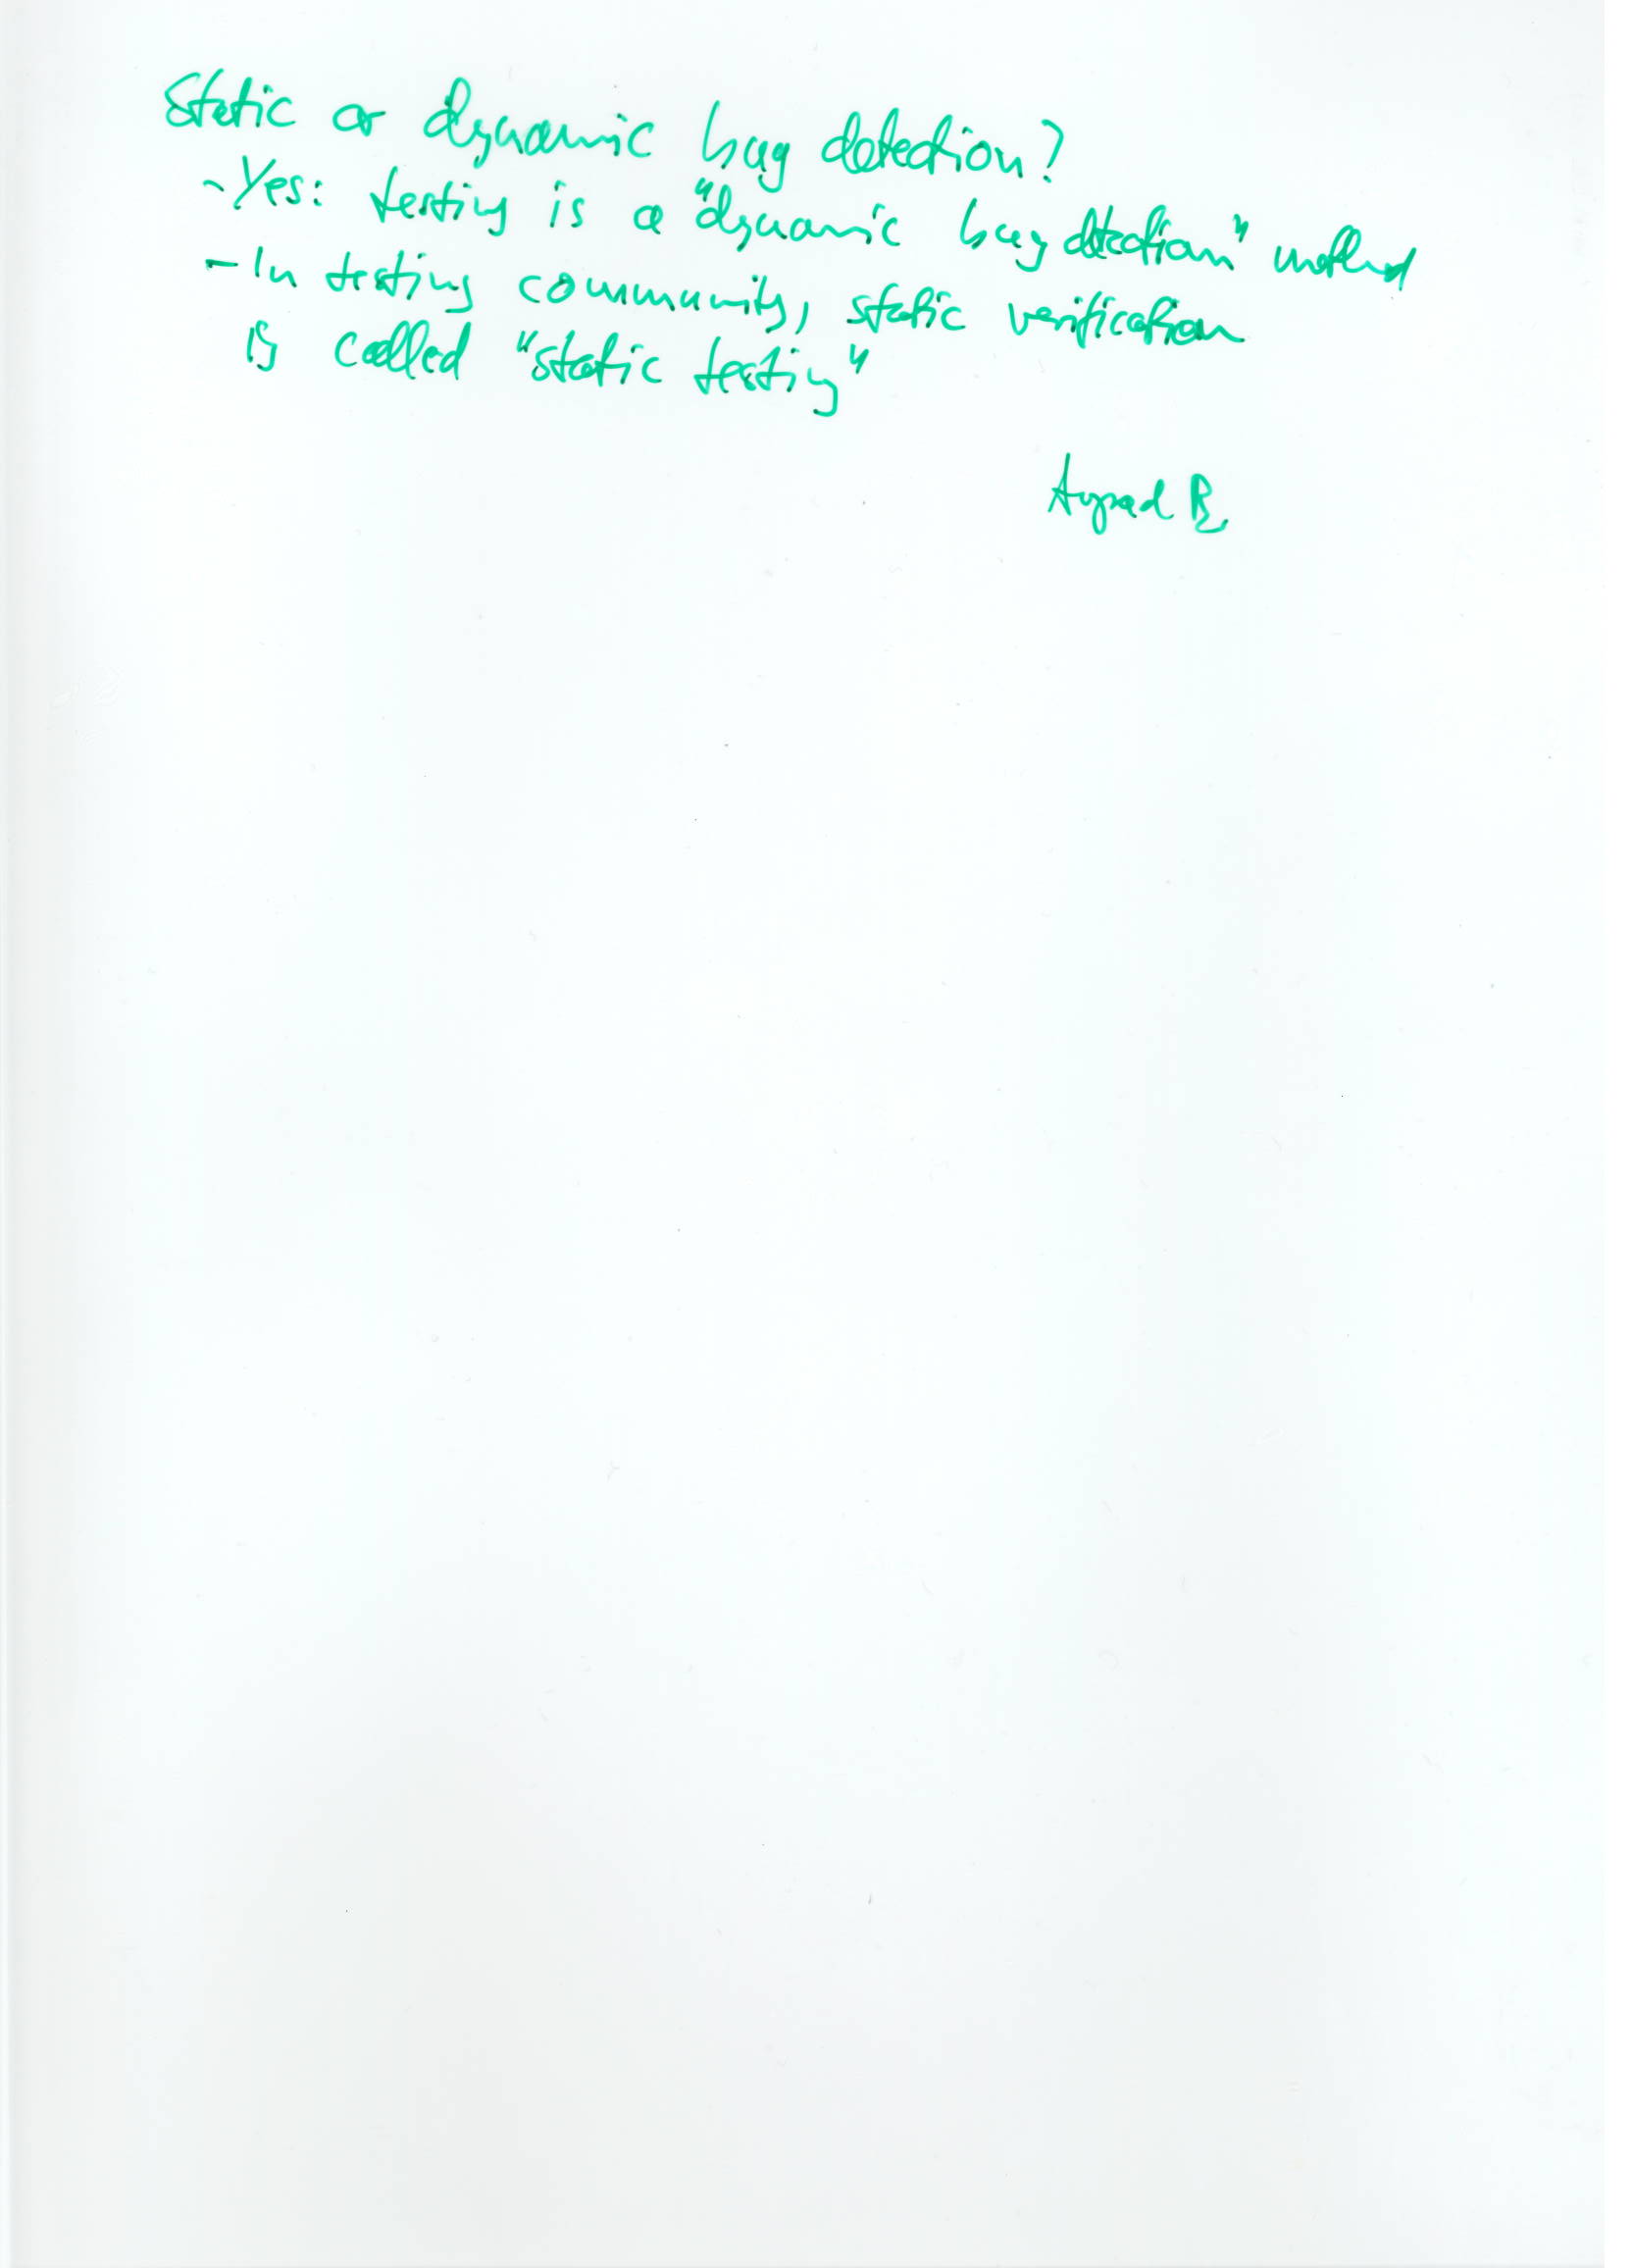 Static or dynamic bug detection?
- Yes: testing is a "dynamic bug detection" method
- In testing community, static verification
is called "static testing"
B.